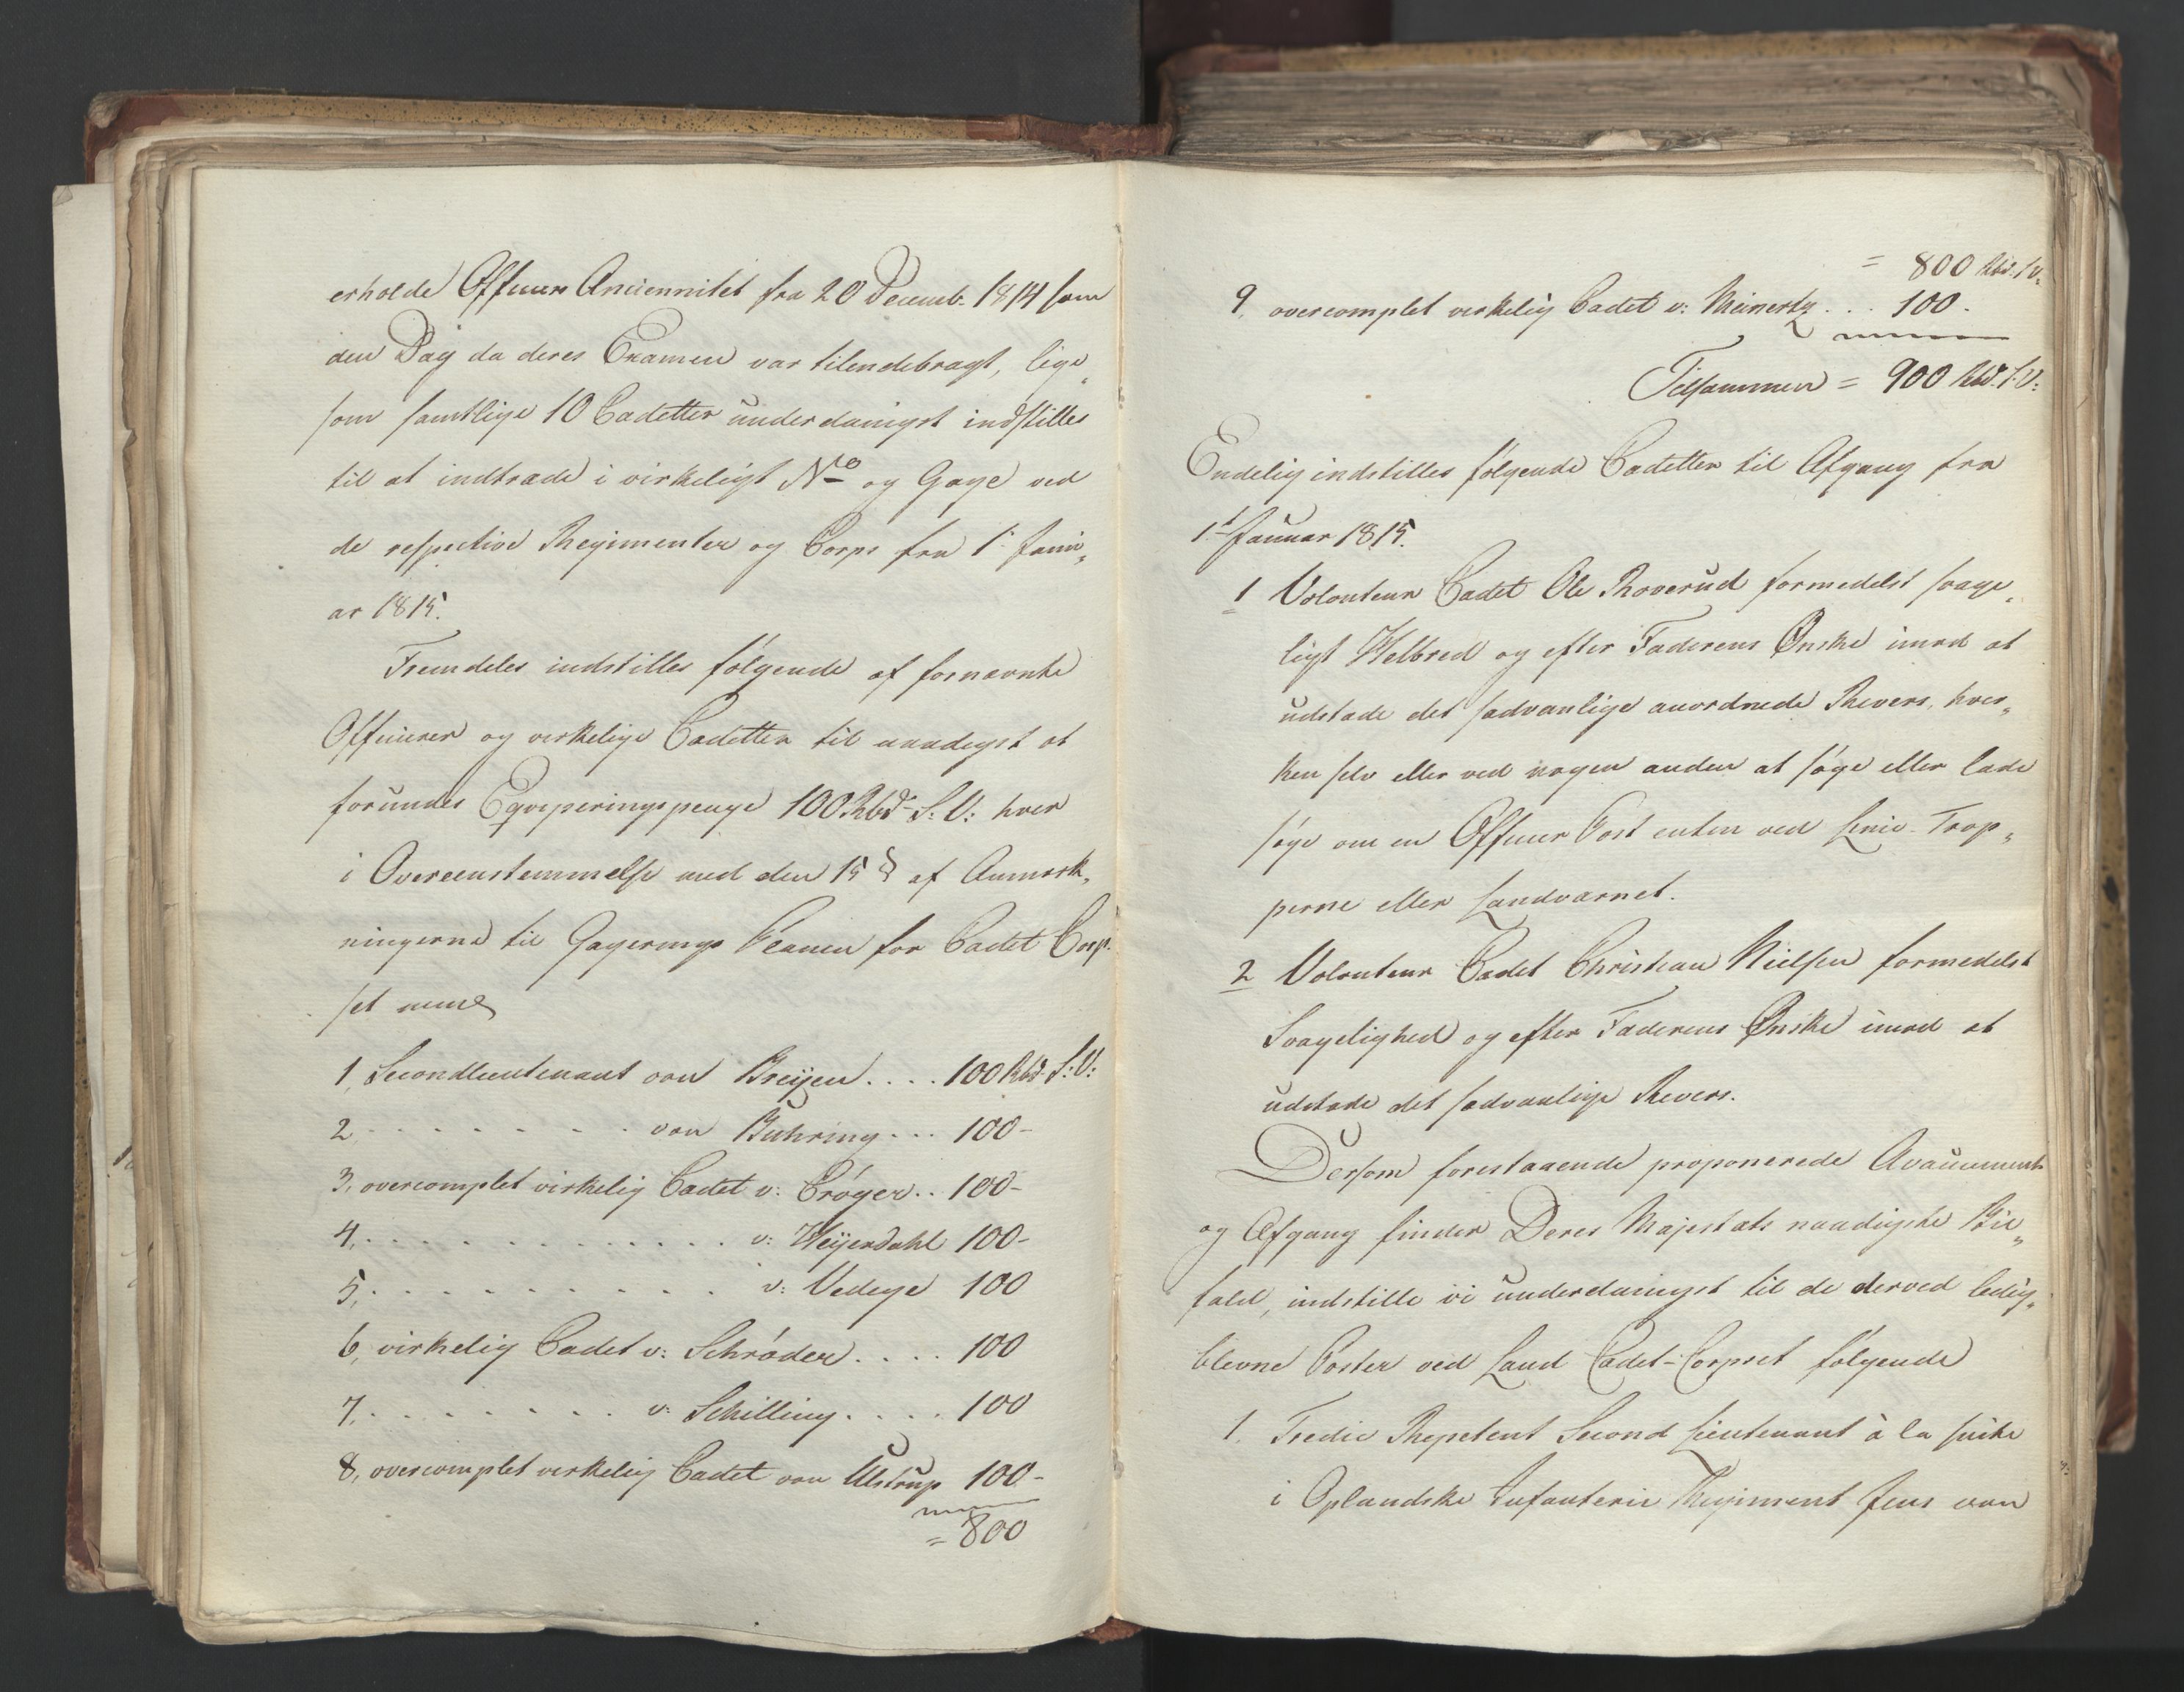 erholde Officeers Anciennitet fra 20 Decemb. 1814 som
den Dag da deres Examen var tilendebragt, lige„
som samtlige 10 Cadetter underdanigst indstilles
til at indtræde i virkeligt No og Gage ved
de respective Regimenter og Corps fra 1t Janu„
ar 1815.
Fremdeles indstilles følgende af fornævnte
Officierer og virkelige Cadetter til naadigst at
forundes Eqviperingspenge 100 Rbd. S: V: hver
i Overeenstemmelse med den 15 § af Anmærk„
ningerne til Gagerings Planen for Cadet Corp„
set
1, Secondlieutenant von Breijen .... 100 Rbd. S: V:
2, . . . . . . . . von Buhring ... 100-
3, overcomplet virkelig Cadet v: Crøger .. 100-
4, . . . . . . . . . . . . v: Weijerdahl 100-
5, . . . . . . . . . . . v: Vedege 100
6, virkelig Cadet v: Schrøder .... 100
7, . . . . . . . . v: Schilling .... 100
8, overcomplet virkelig Cadet von Ulstrup 100-
= 800
= 800 Rbd. S: V:
9, overcomplet virkelig Cadet v: Meinertz ... 100.
Tilsammen = 900 Rbd. S: V:
Endelig indstilles følgende Cadetter til Afgang fra
1t Januar 1815.
1 Volonteur Cadet Ole Roverud formedelst svage„
ligt Helbred og efter Faderens Ønske imod at
udstæde det sædvanlige anordnede Revers, hver„
ken selv eller ved nogen anden at søge eller lade
søge om en Officeer Post enten ved Linie-Trop„
perne eller Landværnet.
2 Volonteur Cadet Christian Nielsen formedelst
Svagelighed og efter Faderens Ønske imod at
udstæde det sædvanlige Revers.
Dersom forestaaende proponerede Avancement
og Afgang finder Deres Majestæts naadigste Bi„
fald, indstille vi underdanigst til de derved ledig„
blevne Poster ved Land Cadet-Corpset følgende
1. Tredie Repetent Second Lieutenant à la suite
i Oplandske Infanterie Regiment Jens von